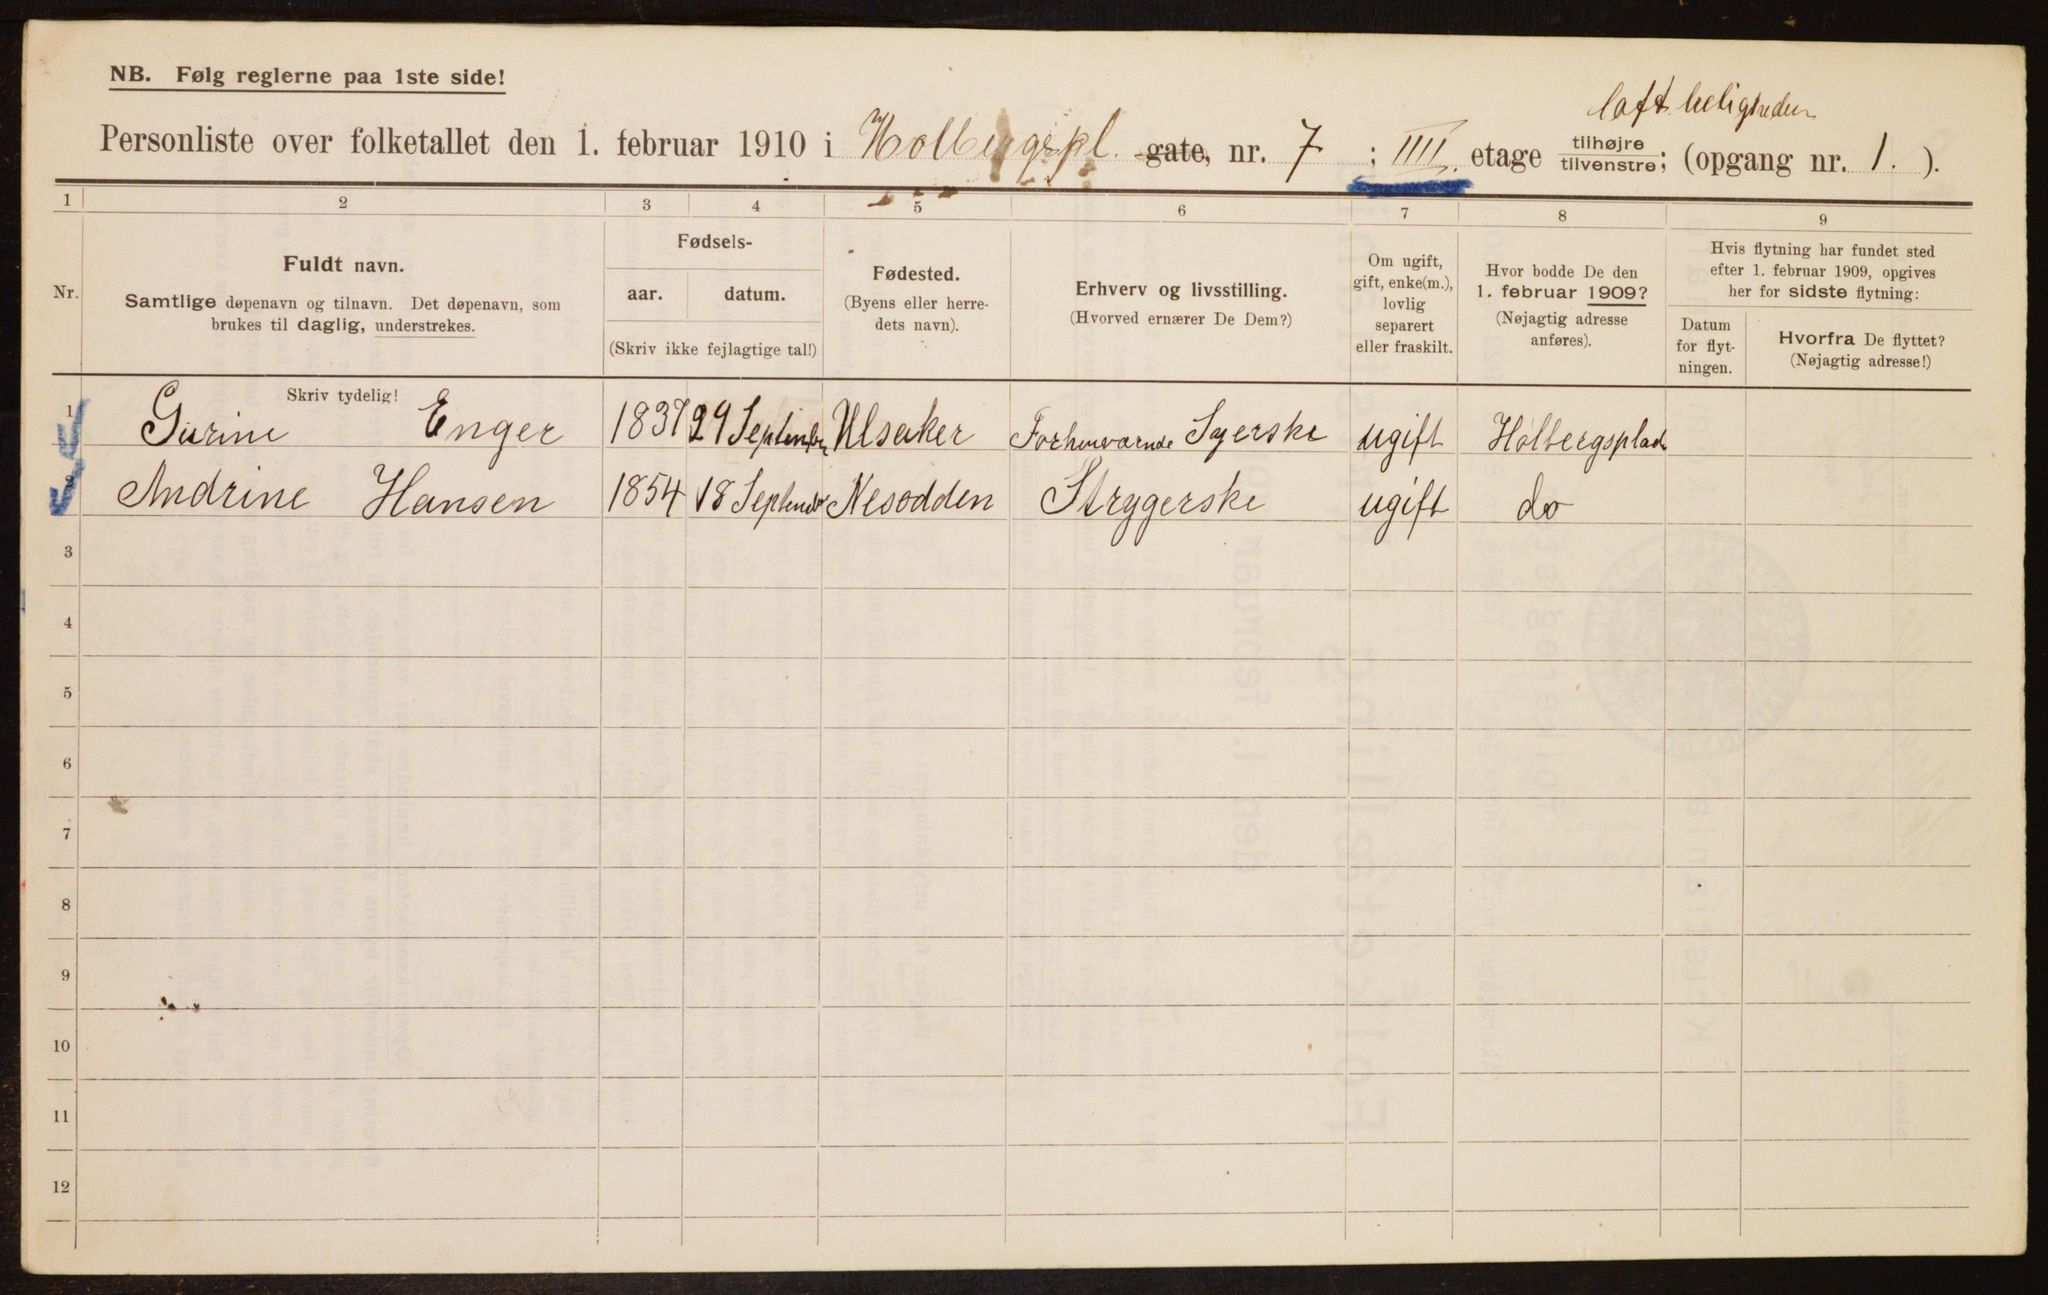 NB. Følg reglerne paa 1ste side!
loft leiligheden
Personliste over folketallet den 1. februar 1910 i Holbergspl. gate, nr. 7 ; IIII. etage tilhøjre tilvenstre; (opgang nr. 1. ).
1 2 3 4 5 6 7 8 9
Nr.
Fuldt navn.
Samtlige døpenavn og tilnavn. Det døpenavn, som
brukes til daglig, understrekes.
Skriv tydelig!
Fødsels-
aar. datum.
(Skriv ikke fejlagtige tal!)
Fødested.
(Byens eller herre-
dets navn).
Erhverv og livsstilling.
(Hvorved ernærer De Dem?)
Om ugift,
gift, enke(m.),
lovlig
separert
eller fraskilt.
Hvor bodde De den
1. februar 1909?
(Nøjagtig adresse
anføres).
Hvis flytning har fundet sted
efter 1. februar 1909, opgives
her for sidste flytning:
Datum
for flyt-
ningen.
Hvorfra De flyttet?
(Nøjagtig adresse!)
1 Gurine Enger 1837 29 September Ulsaker Forhenværnde Syerske ugift Holbergsplads
2 Andrine Hansen 1854 18 September Nesodden Strygerske ugift do
3
4
5
6
7
8
9
10
11
12